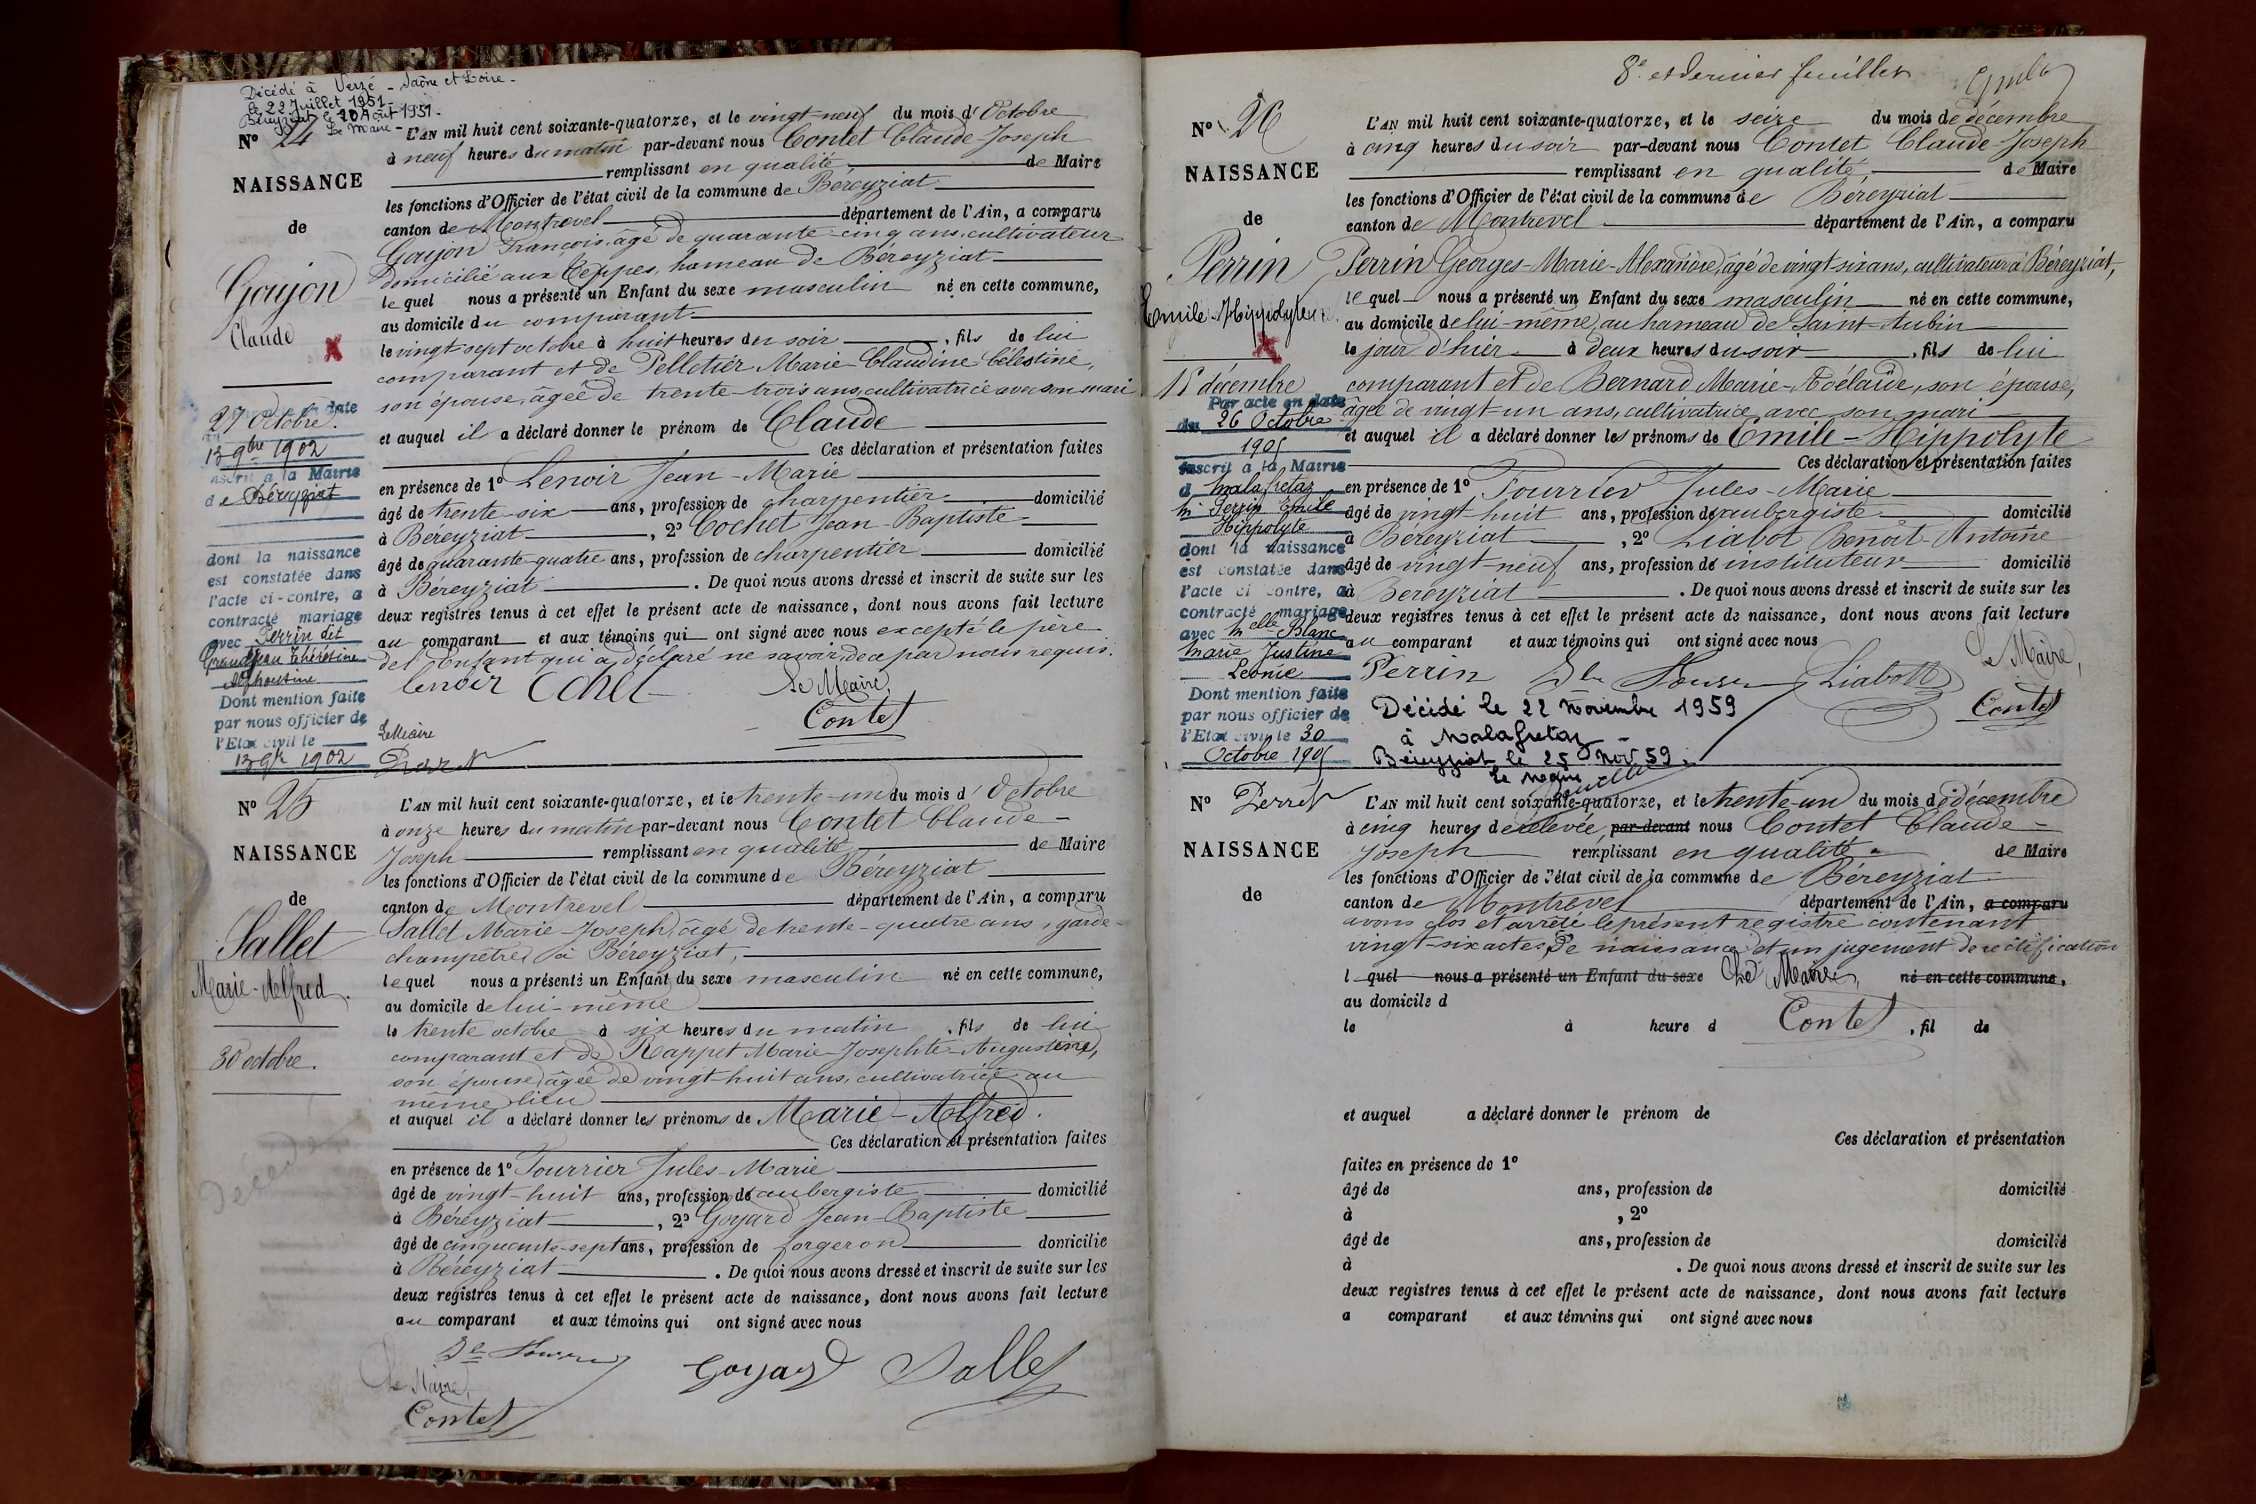 Décédé à Verzé - Saône et Loire -
le 22 Juillet 1951 -
Béreyziat le 20 Août 1951 -
Le Maire -
N° 24
NAISSANCE
de
Goujon
Claude
27 octobre.
date
13 9bre 1902
inscrit à la Mairie
de Béreyziat
dont la naissance
est constatée dans
l'acte ci-contre, a
contracté mariage
avec Perrin dit
Grandjean Thérésine
Alphonsine
Dont mention faite
par nous officier de
l'Etat civil le
13 9bre 1902
L'AN mil huit cent soixante-quatorze, et le vingt-neuf du mois d'Octobre
à neuf heures du matin par-devant nous Contet Claude Joseph
remplissant en qualité de Maire
les fonctions d'Officier de l'état civil de la commune de Béreyziat
canton de Montrevel département de l'Ain, a comparu
Goujon François, âgé de quarante-cinq ans, cultivateur
domicilié aux Teppes, hameau de Béreyziat
le quel nous a présenté un Enfant du sexe masculin né en cette commune,
au domicile du comparant
le vingt-sept octobre à huit heures du soir, fils de lui
comparant et de Pelletier Marie Claudine Célestine,
son épouse, âgée de trente-trois ans, cultivatrice avec son mari
et auquel il a déclaré donner le prénom de Claude
Ces déclaration et présentation faites
en présence de 1° Lenoir Jean-Marie
âgé de trente-six ans, profession de charpentier domicilié
à Béreyziat, 2° Cochet Jean-Baptiste
âgé de quarante-quatre ans, profession de charpentier domicilié
à Béreyziat. De quoi nous avons dressé et inscrit de suite sur les
deux registres tenus à cet effet le présent acte de naissance, dont nous avons fait lecture
au comparant et aux témoins qui ont signé avec nous excepté le père
de l'Enfant qui a déclaré ne savoir, de ce par nous requis.
lenoir Cochet Le Maire,
Contet
Le Maire
N° 25
NAISSANCE
de
Sallet
Marie-Alfred.
30 octobre.
L'AN mil huit cent soixante-quatorze, et le trente-un du mois d'Octobre
à onze heures du matin par-devant nous Contet Claude-
Joseph remplissant en qualité de Maire
les fonctions d'Officier de l'état civil de la commune de Béreyziat
canton de Montrevel département de l'Ain, a comparu
Sallet Marie-Joseph, âgé de trente-quatre ans, garde-
champêtre à Béreyziat,
le quel nous a présenté un Enfant du sexe masculin né en cette commune,
au domicile de lui-même
le trente octobre à six heures du matin, fils de lui
comparant et de Rappet Marie-Josephte-Augustine,
son épouse, âgée de vingt-huit ans, cultivatrice au
même lieu
et auquel il a déclaré donner les prénoms de Marie-Alfred.
Ces déclaration et présentation faites
en présence de 1° Fourrier Jules-Marie
âgé de vingt-huit ans, profession d'aubergiste domicilié
à Béreyziat, 2° Goyard Jean-Baptiste
âgé de cinquante-sept ans, profession de forgeron domicilié
à Béreyziat. De quoi nous avons dressé et inscrit de suite sur les
deux registres tenus à cet effet le présent acte de naissance, dont nous avons fait lecture
au comparant et aux témoins qui ont signé avec nous
Goyard Sallet
Le Maire,
Contet
8e et dernier feuillet
N° 26
NAISSANCE
de
Perrin
Emile-Hippolyte
15 décembre
Par acte en date
du 26 Octobre
1905
inscrit à la Mairie
d Malafretaz
M. Perrin Emile
Hippolyte
dont la naissance
est constatée dans
l'acte ci contre, a
contracté mariage
avec Melle Blanc
Marie Justine
Léonie
Dont mention faite
par nous officier de
l'Etat civil le 30
Octobre 1905
L'AN mil huit cent soixante-quatorze, et le seize du mois de décembre
à cinq heures du soir par-devant nous Contet Claude-Joseph
remplissant en qualité de Maire
les fonctions d'Officier de l'état civil de la commune de Béreyziat
canton de Montrevel département de l'Ain, a comparu
Perrin Georges-Marie-Alexandre, âgé de vingt-six ans, cultivateur à Béreyziat,
le quel nous a présenté un Enfant du sexe masculin né en cette commune,
au domicile de lui-même, au hameau de Saint-Aubin
le jour d'hier à deux heures du soir, fils de lui
comparant et de Bernard Marie-Adélaïde, son épouse,
âgée de vingt-un ans, cultivatrice avec son mari
et auquel il a déclaré donner les prénoms de Emile-Hippolyte
Ces déclaration et présentation faites
en présence de 1° Fourrier Jules-Marie
âgé de vingt-huit ans, profession d'aubergiste domicilié
à Béreyziat, 2° Liabot Benoît-Antoine
âgé de vingt-neuf ans, profession d'instituteur domicilié
à Béreyziat. De quoi nous avons dressé et inscrit de suite sur les
deux registres tenus à cet effet le présent acte de naissance, dont nous avons fait lecture
au comparant et aux témoins qui ont signé avec nous
Perrin Liabot Le Maire,
Contet
Décédé le 22 Novembre 1959
à Malafretaz -
Béreyziat le 25 Nov 59.
Le maire
N° Perret
NAISSANCE
de
L'AN mil huit cent soixante-quatorze, et le trente-un du mois de décembre
à cinq heures de relevée, par-devant nous Contet Claude-
Joseph remplissant en qualité de Maire
les fonctions d'Officier de l'état civil de la commune de Béreyziat
canton de Montrevel département de l'Ain, a comparu
avons clos et arrêté le présent registre contenant
vingt-six actes de naissance et un jugement de rectification
l quel nous a présenté un Enfant du sexe Le Maire, né en cette commune,
au domicile d
le à heure d Contet, fil de
et auquel a déclaré donner le prénom de
Ces déclaration et présentation
faites en présence de 1°
âgé de ans, profession de domicilié
à , 2°
âgé de ans, profession de domicilié
à . De quoi nous avons dressé et inscrit de suite sur les
deux registres tenus à cet effet le présent acte de naissance, dont nous avons fait lecture
a comparant et aux témoins qui ont signé avec nous